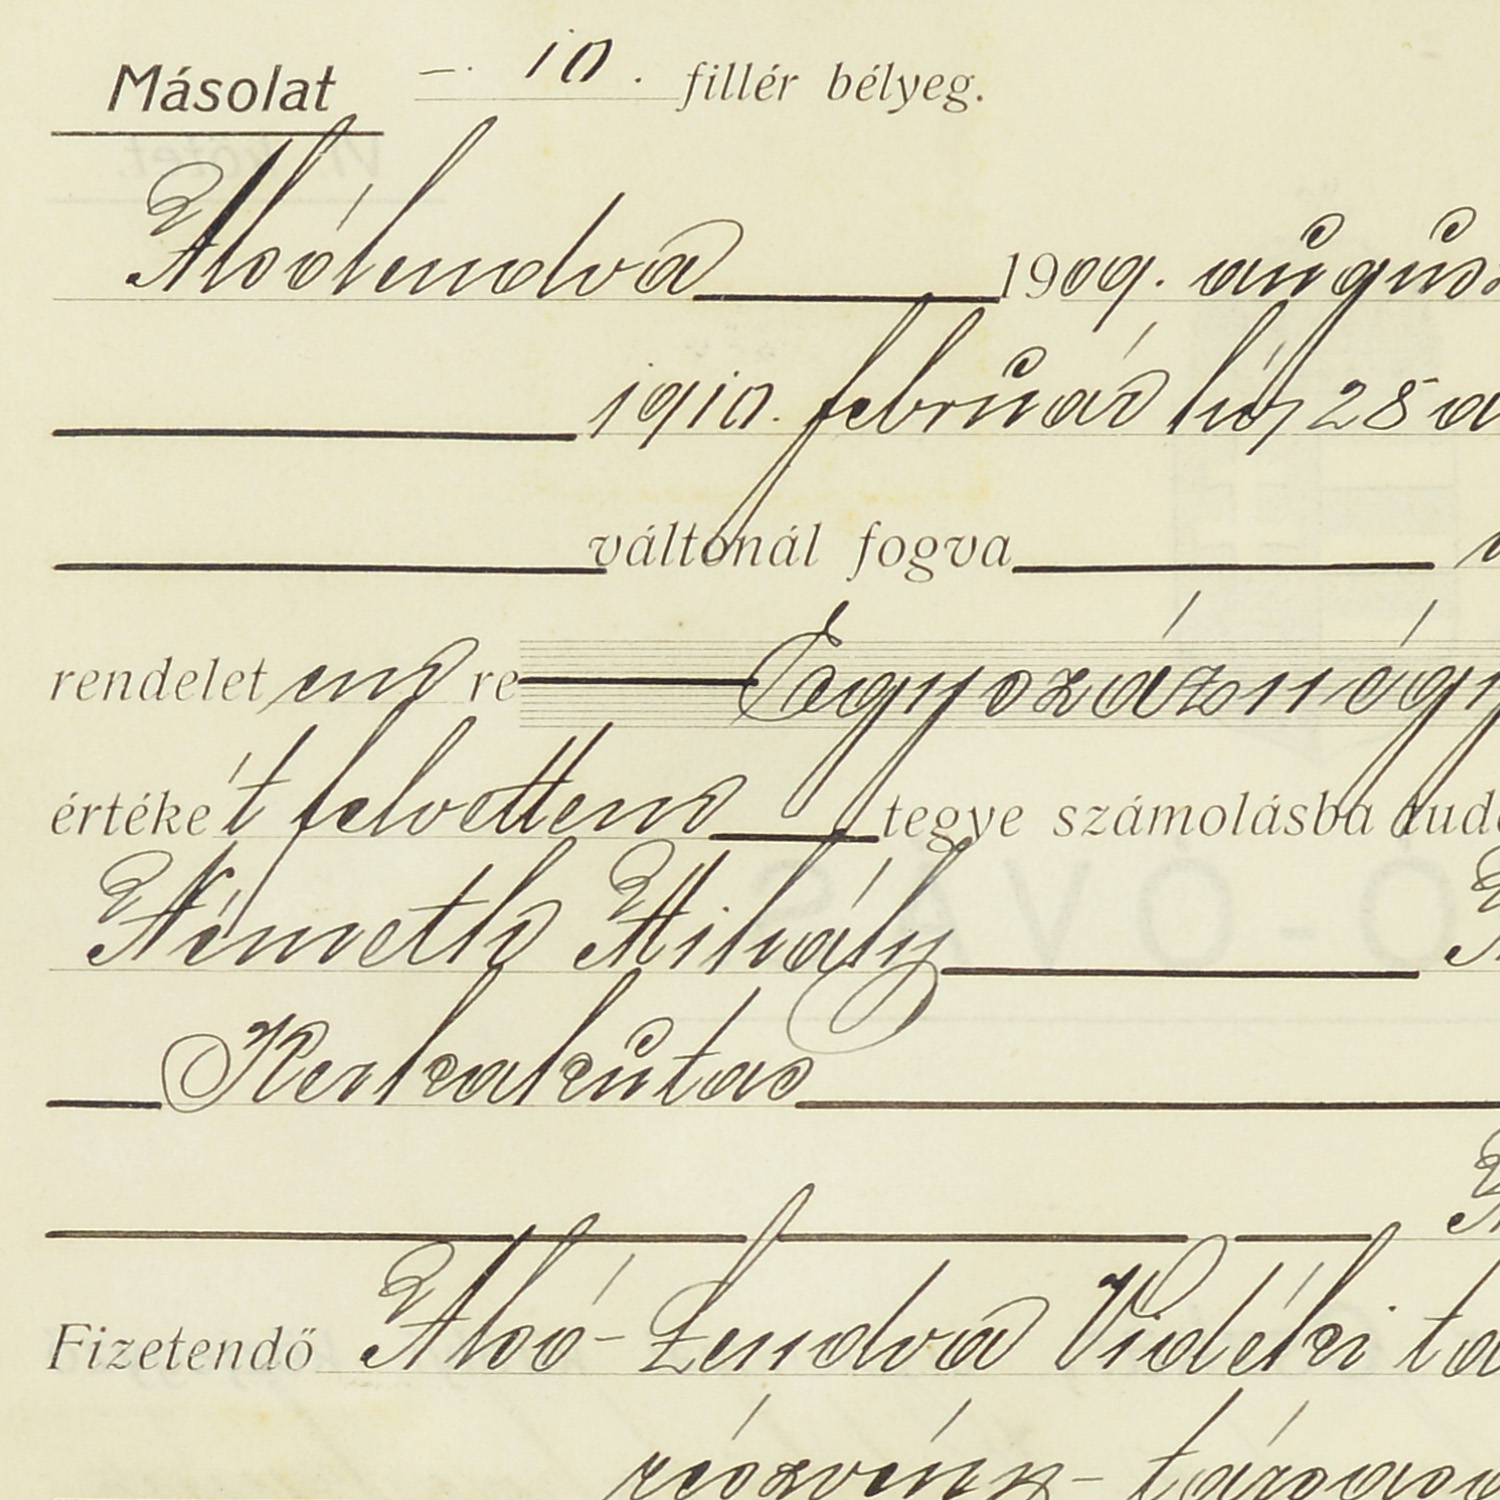 Másolat –. 10. fillér bélyeg.
Alsólendva 1909. augus
1910. február hó 28 a
váltónál fogva
rendelet em re Egyszáznégy
értéké't felvettem tegye számolásba tud
Németh Mihály
Kerkakutas
Fizetendő Alsó-Lendva Vidéki ta
részvény-társas